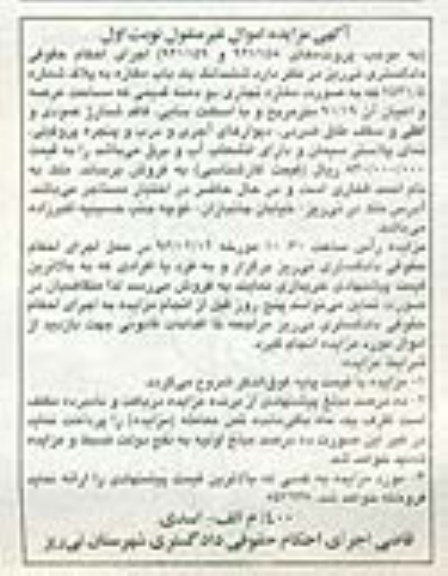 آگهی مزایده اموال غیرمنقول نوبت اول
(به موجب پرونده‌های ۹۲۱۱۵۸ و ۹۲۱۱۵۹) اجرای احکام حقوقی
دادگستری نی‌ریز در نظر دارد ششدانگ یک باب مغازه به پلاک شماره
که به صورت مغازه تجاری دو دهنه قدیمی که مساحت عرصه
و اعیان آن ۷۰/۱۹ مترمربع و با اسکلت بنایی، فاقد شناژ عمودی و
افقی و سقف طاق ضربی، دیوارهای آجری و درب و پنجره پروفیلی،
نمای پلاستر سیمان و دارای انشعاب آب و برق می‌باشد را به قیمت
ریال (قیمت کارشناسی) به فروش برساند. ملک به
نام احمد است و در حال حاضر در اختیار مستأجر می‌باشد.
آدرس ملک در نی‌ریز - خیابان جانبازان - جنب حسینیه
می‌باشد.
مزایده رأس ساعت ۱۰:۳۰ مورخه در محل اجرای احکام
حقوقی دادگستری نی‌ریز برگزار و به فرد یا افرادی که به بالاترین
قیمت پیشنهادی خریداری نمایند به فروش می‌رسد لذا متقاضیان در
صورت تمایل می‌توانند پنج روز قبل از انجام مزایده به اجرای احکام
حقوقی دادگستری نی‌ریز مراجعه تا اقدامات قانونی جهت بازدید از
اموال مورد مزایده انجام گیرد.
شرایط مزایده:
۱- مزایده با قیمت پایه فوق‌الذکر شروع می‌گردد.
۲- ده درصد مبلغ پیشنهادی از برنده مزایده دریافت و نامبرده مکلف
است ظرف یک ماه باقی‌مانده ثمن معامله (مزایده) را پرداخت نماید
در غیر این صورت ده درصد مبلغ اولیه به نفع دولت ضبط و مزایده
تجدید خواهد شد.
۳- مورد مزایده به کسی که بالاترین قیمت پیشنهادی را ارائه نماید
فروخته خواهد شد.
۴۰۰/ م الف- اسدی
قاضی اجرای احکام حقوقی دادگستری شهرستان نی‌ریز